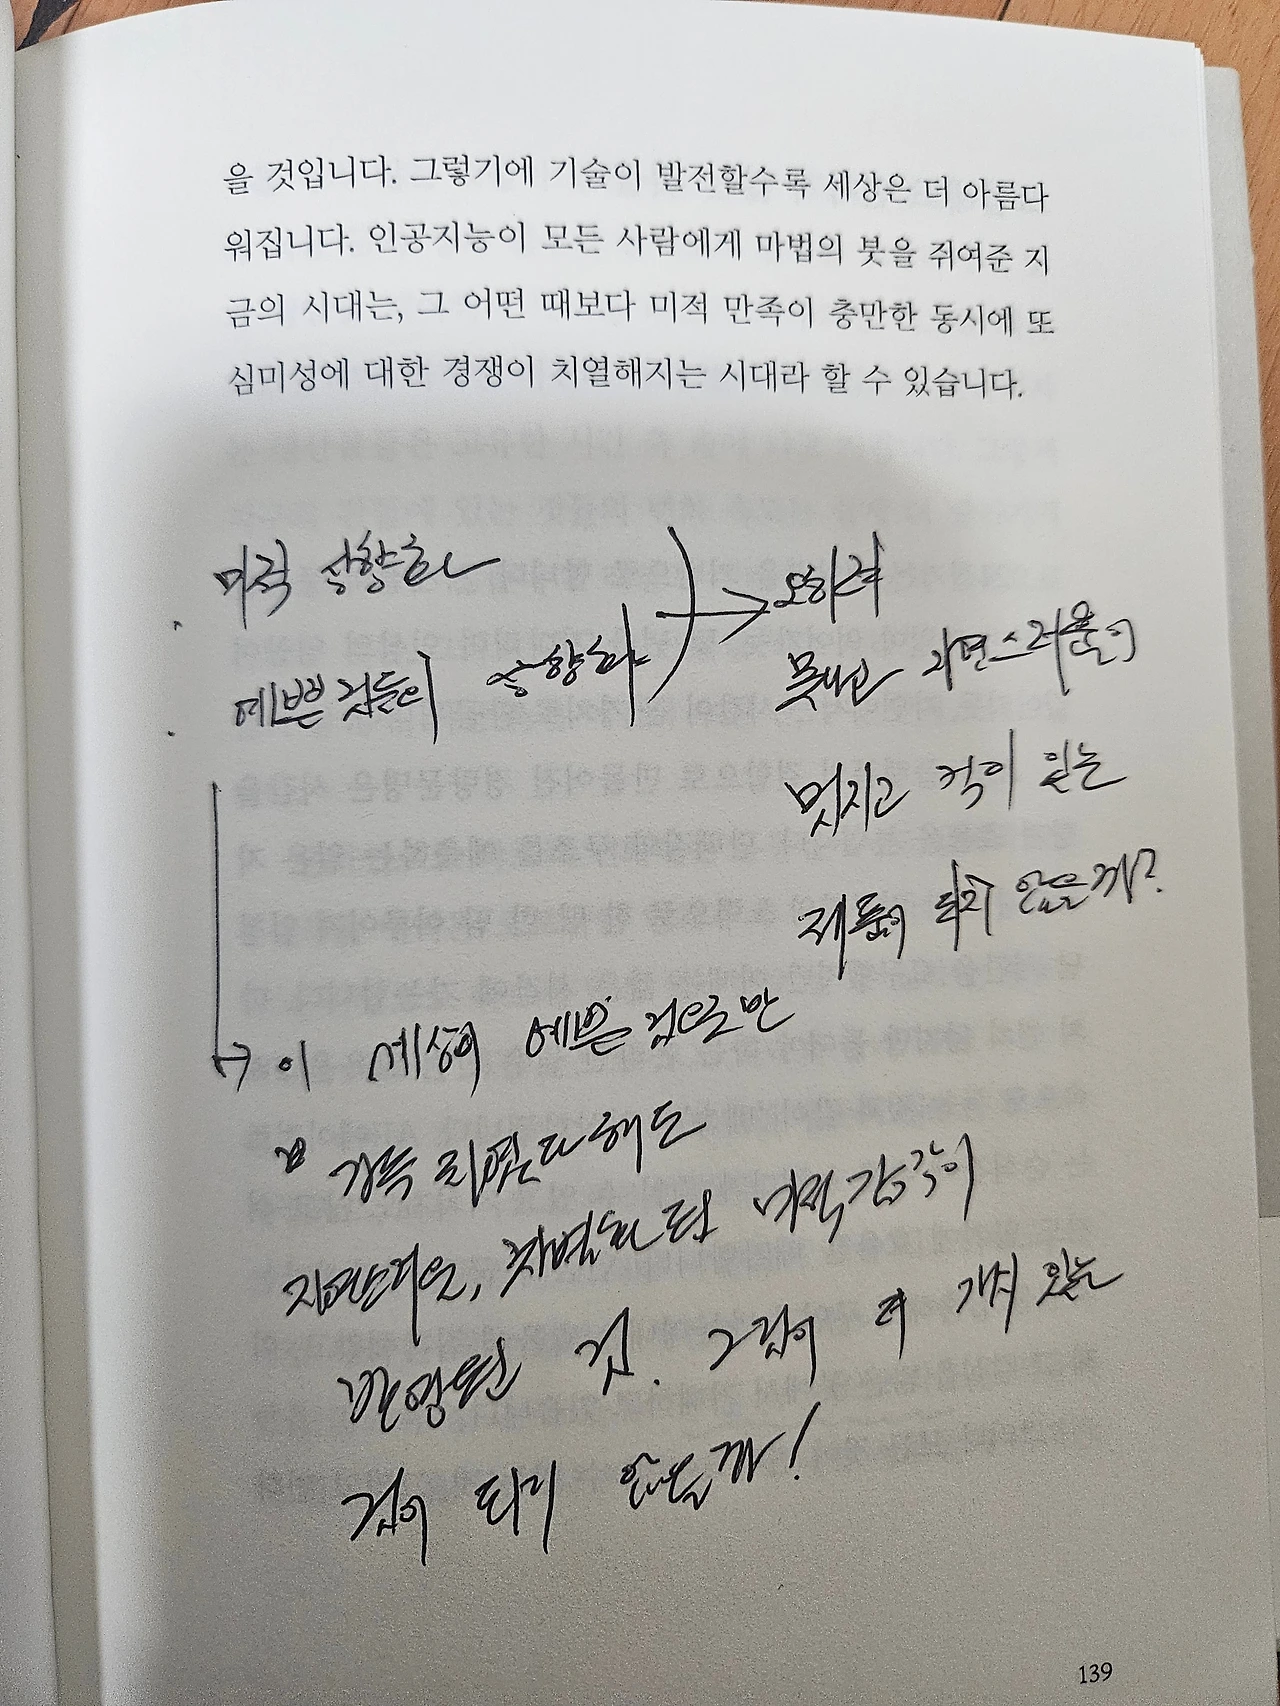 을 것입니다. 그렇기에 기술이 발전할수록 세상은 더 아름다
워집니다. 인공지능이 모든 사람에게 마법의 붓을 쥐여준 지
금의 시대는, 그 어떤 때보다 미적 만족이 충만한 동시에 또
심미성에 대한 경쟁이 치열해지는 시대라 할 수 있습니다.
미적 상향화
예쁜 것들의 상향화
오히려
못나고 자연스러움이
멋지고 격이 있는
제품이 되지 않을까?
이 세상이 예쁜 것으로만
가득 차있다 해도
차별화된 미적감각이
반영된 것. 그것이 더 가치 있는
것이 되지 않을까!
139